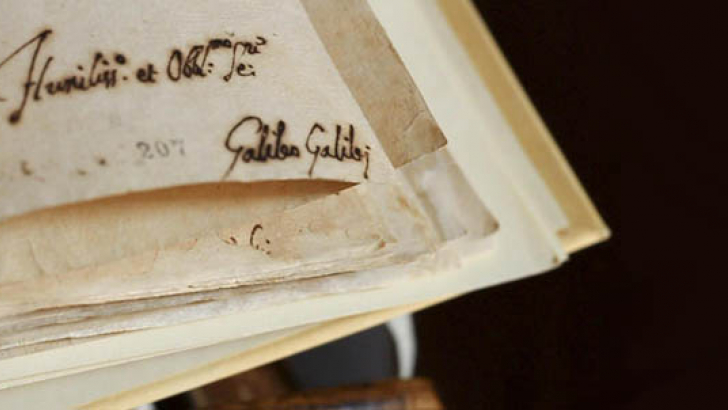 Humiliss.º et Obb.mo Se.re
207
Galileo Galilej